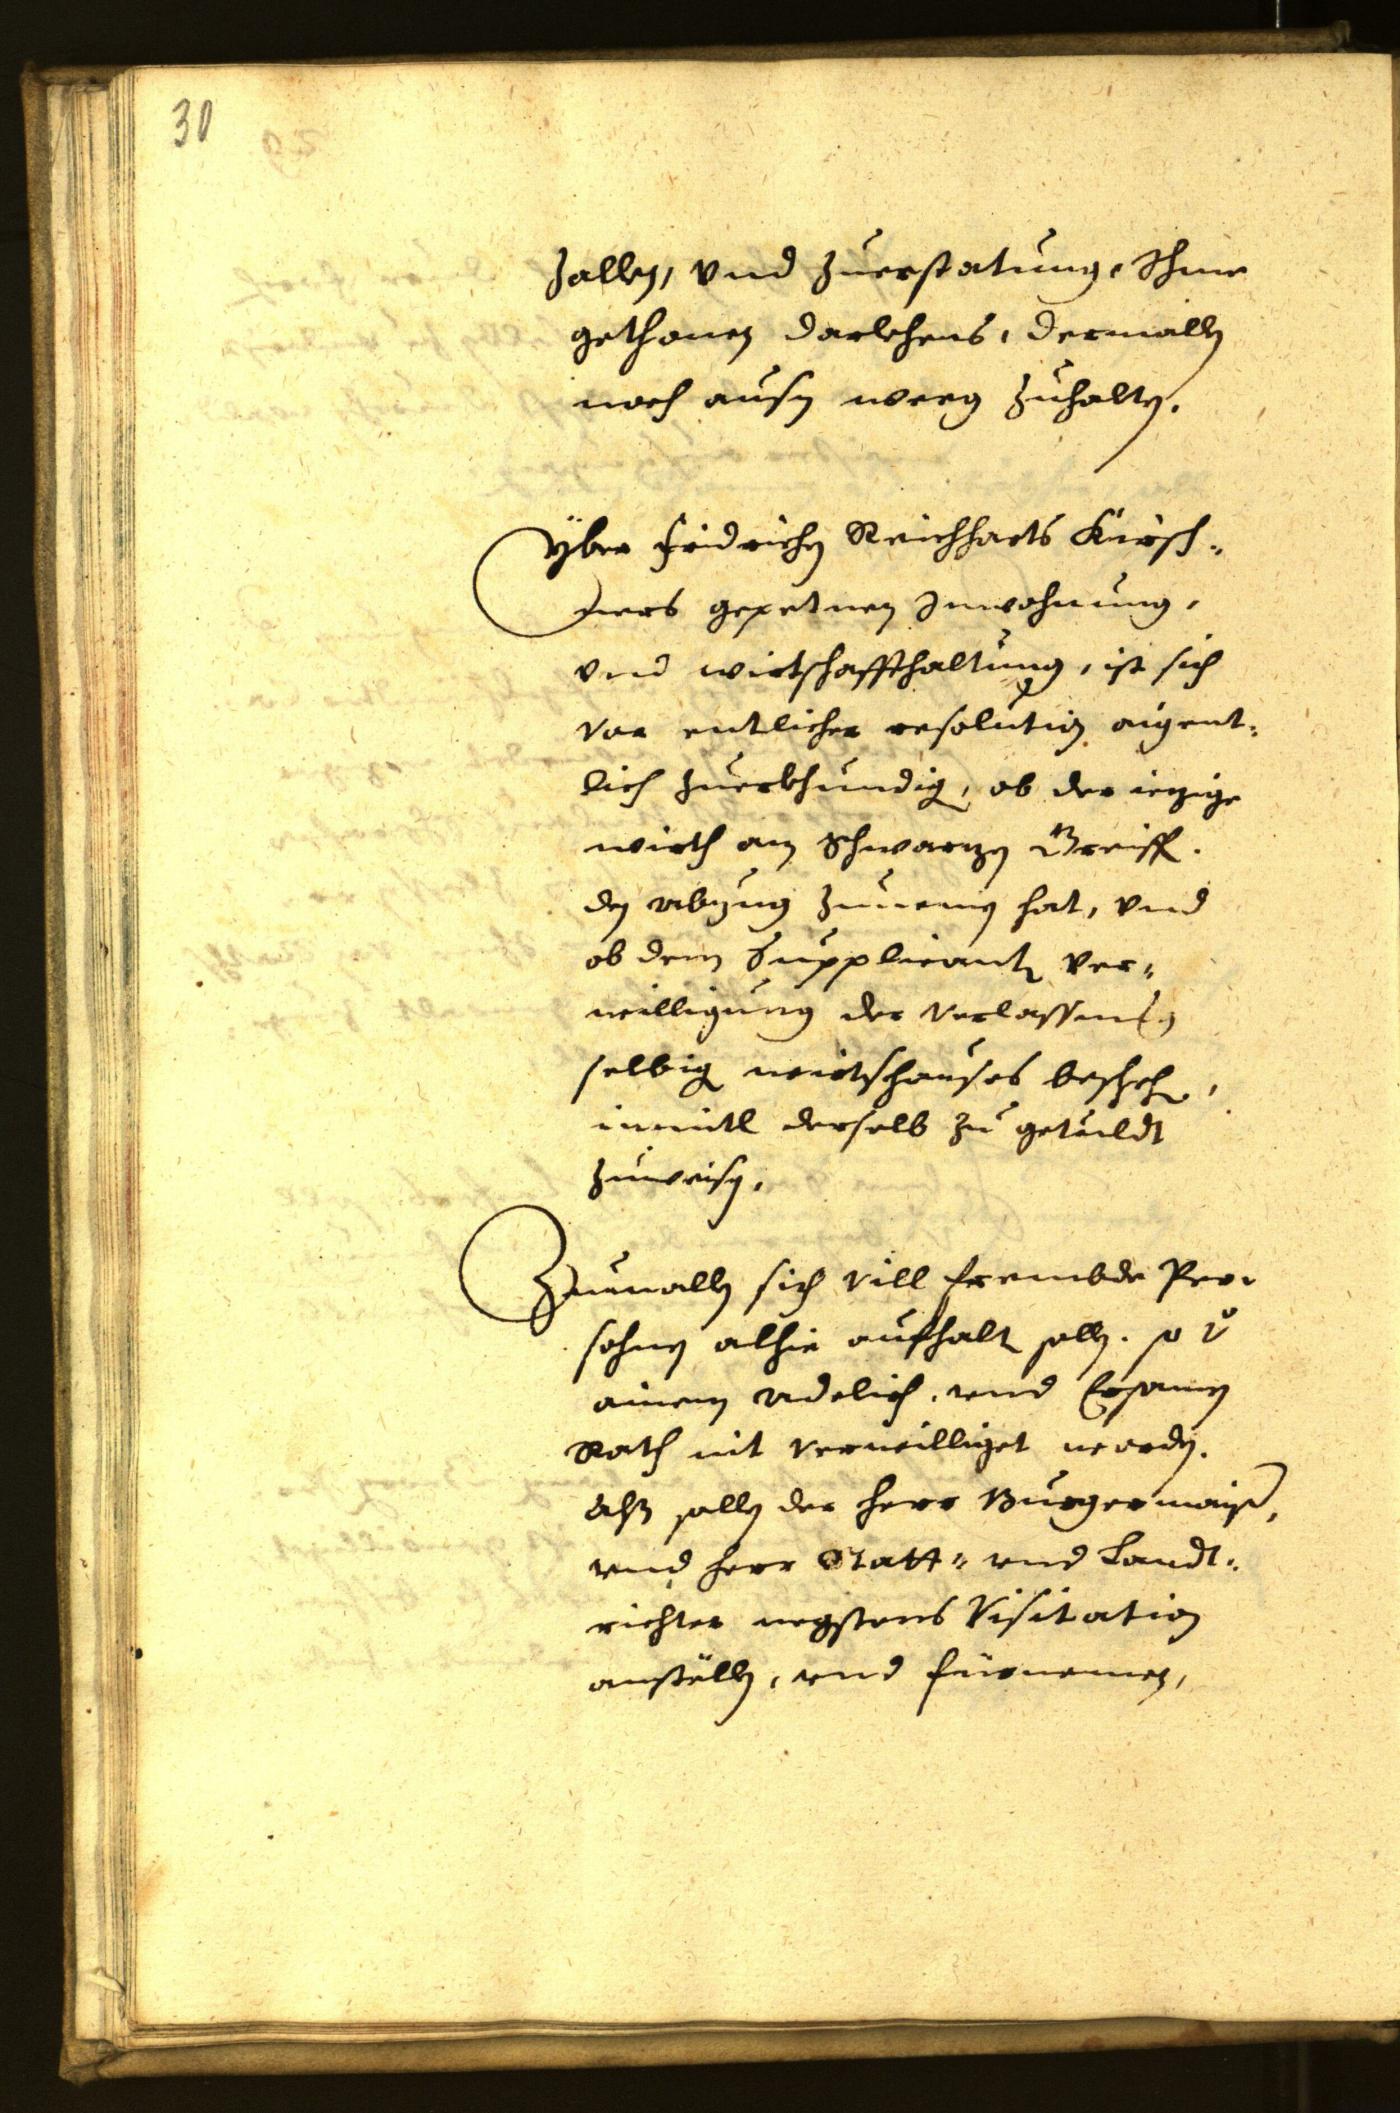 30
zallen, vnd zuerstatung, Ihme
gethonen darlehens, dermallen
noch ausen weeg zuhalten.
Yber Fridrichen Reichharts Kürsch-
ners gepetnen Inwohnung,
vnd wirtschaffthaltung, ist sich
vor entlicher resolution aigent-
lich zuerkhundigen, ob der iezige
wirth am Schwarzen Greiffen
den abzug zunemen hat, vnd
ob dem Supplicanten ver-
willigung der verlassung
selbigen wirtshauses beschehen,
inmitl derselb zu getuldt
zuweisen.
Zumallen sich vill frembde Per-
sohnen alhie aufhalten sollen. so v
ainem Adelich. vnd Ersamen
Rath nit verwilliget worden.
Alß sollen der herr Burgermaister,
vnd herr Statt- vnd Landt-
richter negstens Visitation
anstöllen, vnd fürnemen,